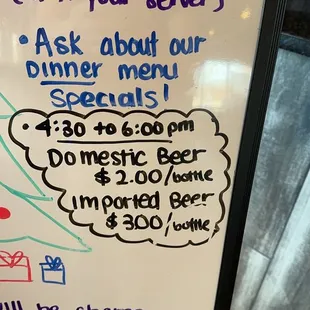 your server)
• Ask about our
Dinner menu
Specials!
• 4:30 to 6:00 pm
Domestic Beer
$2.00/bottle
Imported Beer
$3.00/bottle
be